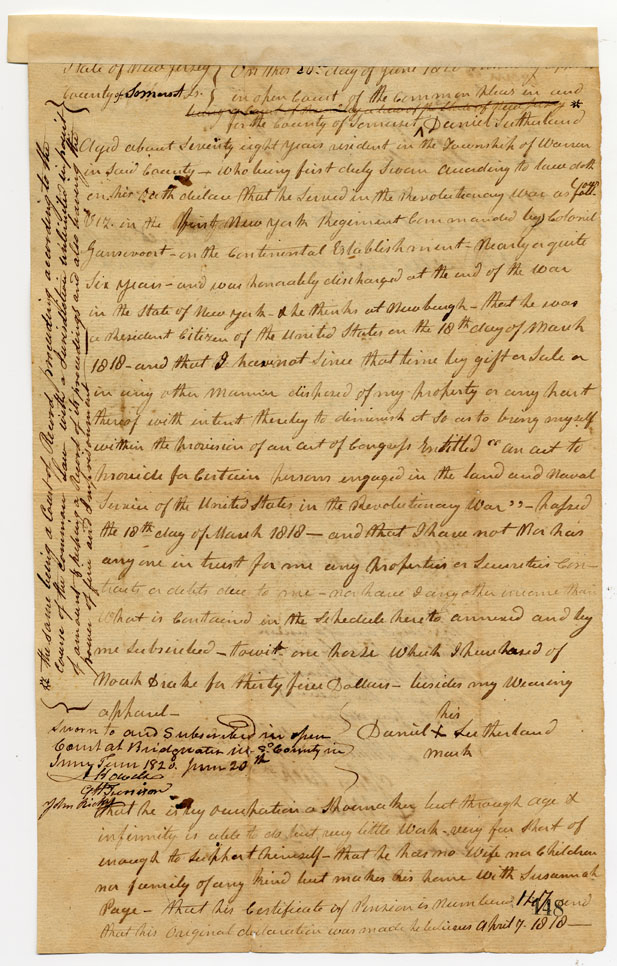 State of New Jersey } On this 20th day of June
County of Somerset ss. } in open Court of the Common pleas in and
for the County of Somerset, ^ Daniel Sutherland
Aged about Seventy eight years resident in the Township of Warren
in Said County - who being first duly Sworn according to law doth
on his Oath declare that he Served in the Revolutionary War as foll.
Viz. in the first New York Regiment Commanded by Colonel
Gansevoort - on the Continental Establishment - Nearly or quite
Six years - and was honorably discharged at the end of the war
in the State of New York - & he thinks at Newburgh - that he was
a Resident Citizen of the United States on the 18th day of March
1818 - and that I have not Since that time by gift or Sale or
in any other Manner disposed of my property or any part
thereof with intent thereby to diminish it So as to bring myself
within the provision of an act of Congress Entitled "an act to
provide for Certain persons engaged in the land and Naval
Service of the United States in the Revolutionary War" - passed
the 18th day of March 1818 - and that I have not Nor has
any one in trust for me any Properties or Securities Con-
tracts or debts due to me - nor have I any other income than
what is Contained in the Schedule hereto annexed and by
me Subscribed - towit - one horse which I purchased of
Noah Drake for thirty five Dollars - besides my Wearing
apparel -
Sworn to and Subscribed in open
Court at Bridgwater in sd. County in
June Term 1820. June 20th
his
Daniel X Sutherland
mark
that he is by occupation a Shoemaker but through age &
infirmity is able to do but very little Work - very far Short of
enough to Support himself - that he has no Wife nor Children
nor family of any kind but makes his home with Susannah
Page - that his Certificate of Pension is Number and
148
that his Original declaration was made he believes April 7. 1818 -
** the same being a Court of Record proceeding according to the
Course of the Common Law with a Jurisdiction unlimited in point
of amount & keeping a Record of its proceedings and also having the
power of fine and Imprisonment